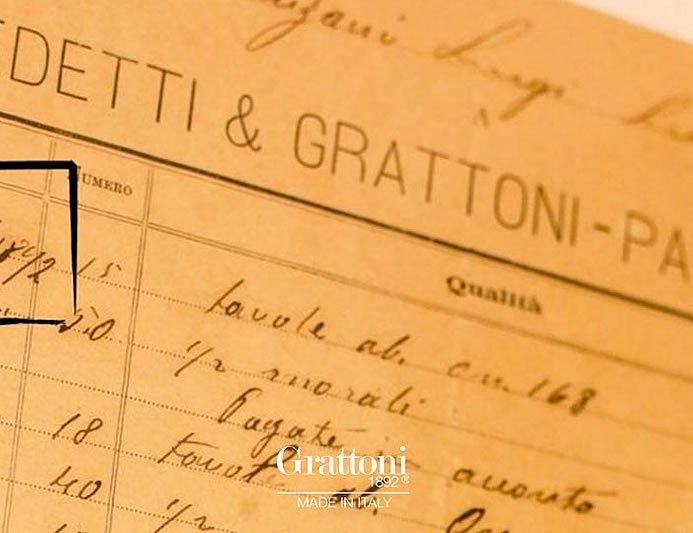 Luigi
EDETTI & GRATTONI-PA
NUMERO
Qualità
1892 15 tavole ab. cm. 168
50 1/2 morali
Pagate in acconto
18 tavole ab.
40 1/2
Grattoni
1892®
MADE IN ITALY